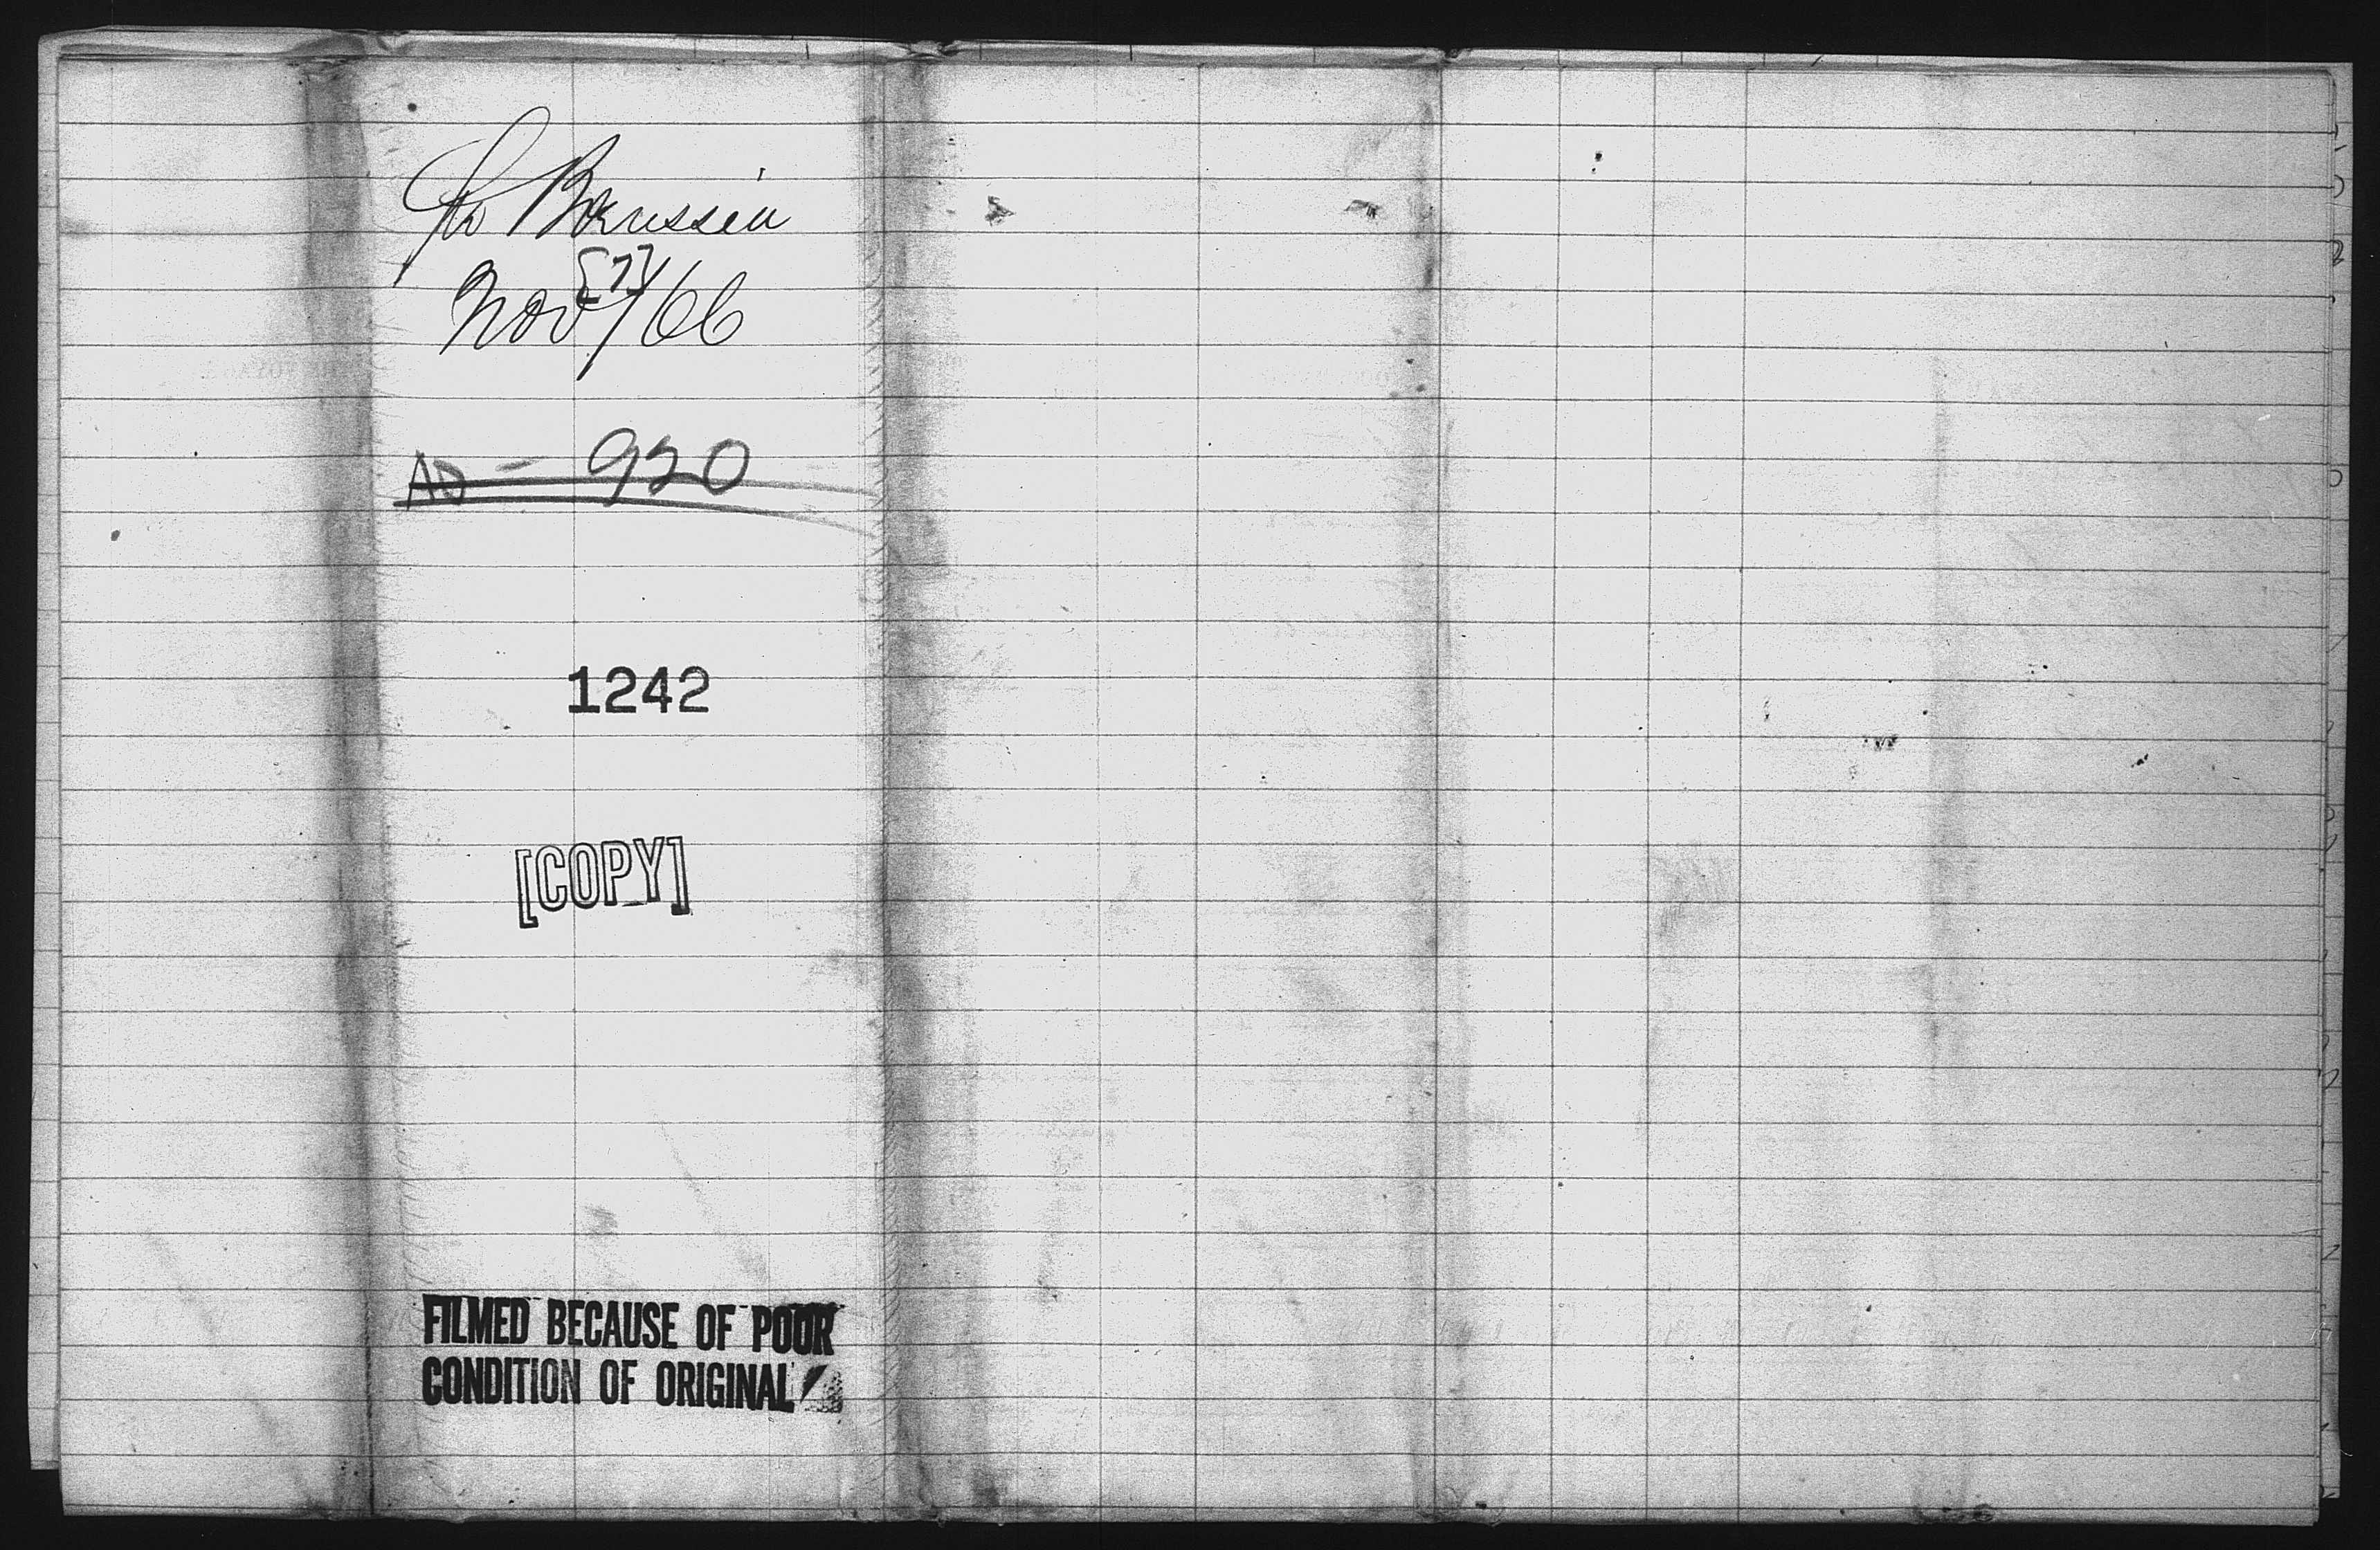 Str Borussia
Nov [7]/66
AD - 920
1242
[COPY]
FILMED BECAUSE OF POOR
CONDITION OF ORIGINAL